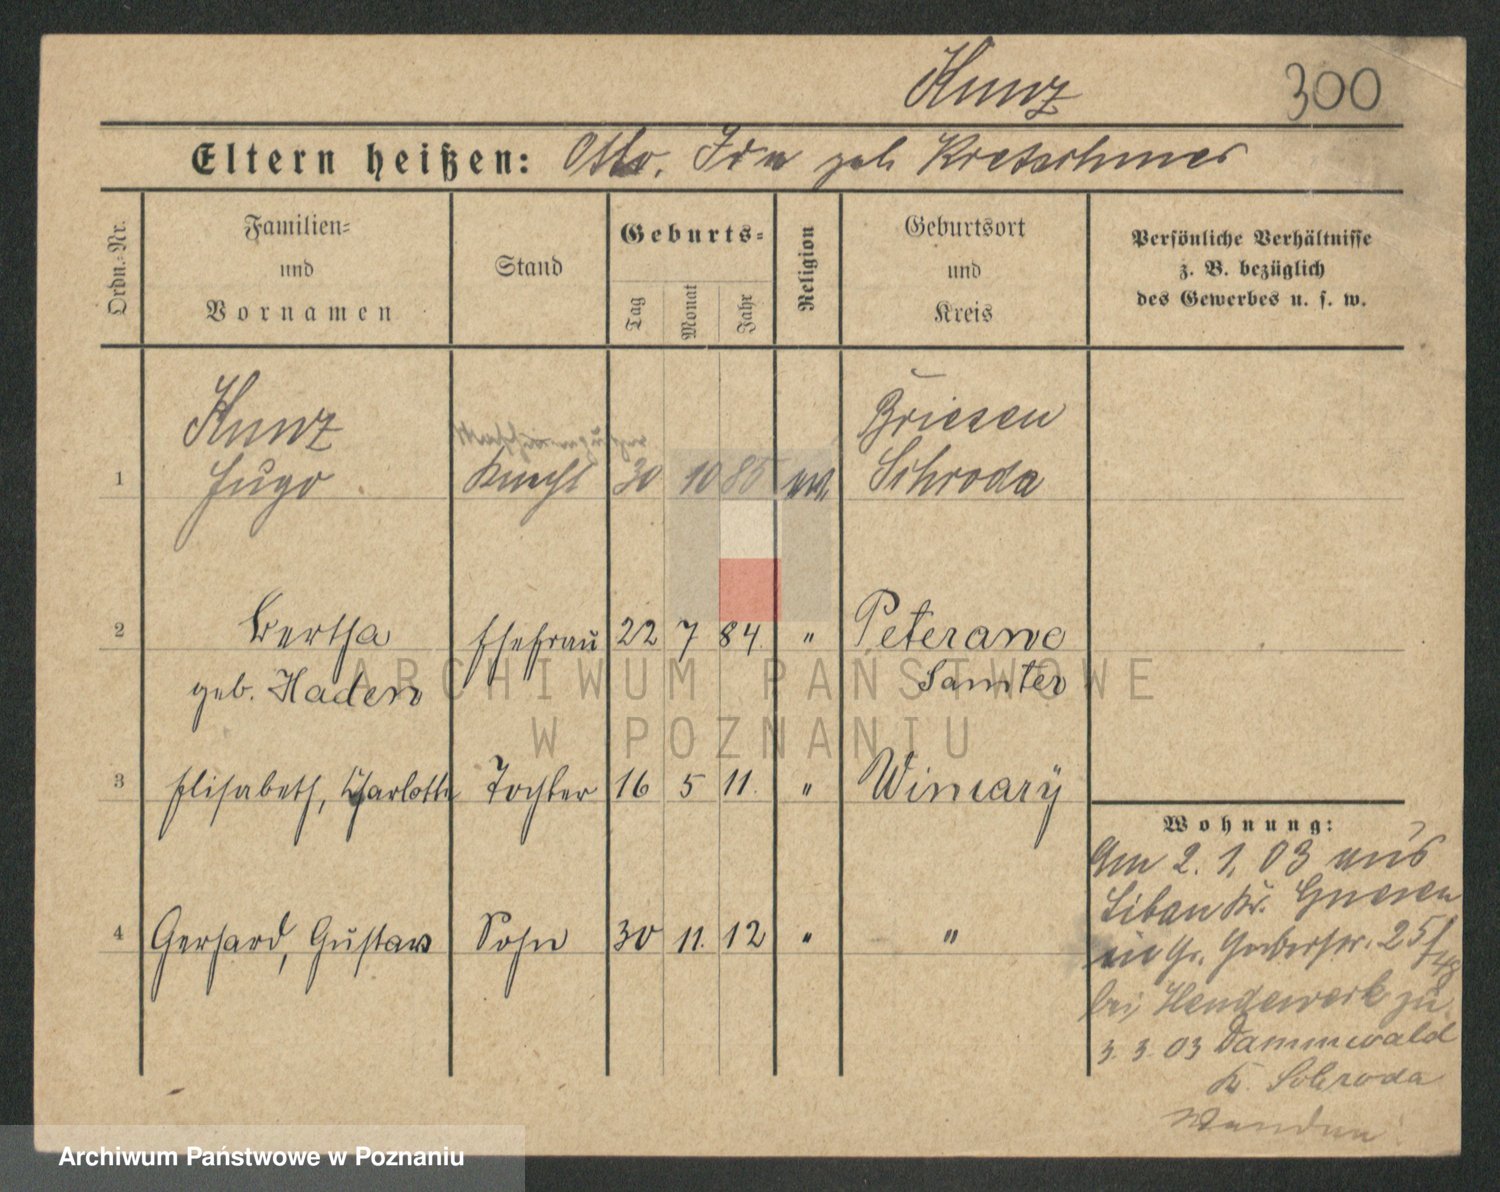 Kunz 300
Eltern heißen: Otto, Ida geb Kretschmer
Ordn.=Nr.
Familien=
und
Vornamen
Stand
Geburts=
Tag
Monat
Jahr
Religion
Geburtsort
und
Kreis
Persönliche Verhältnisse
z. B. bezüglich
des Gewerbes u. s. w.
Kunz Briesen
1 Hugo Knecht 30 10 85 ev. Schroda
2 Bertha Ehefrau 22 7 84. " Peterawe
geb. Samter
3 Elisabeth, Charlotte Tochter 16 5 11. " Winiary
4 Gerhard, Gustav Sohn 30 11. 12 " "
Wohnung:
Am 2. 1. 03 aus
Libau Kr. Gnesen
in Gr. Gerberstr. 25
bei Hendewerk zu
3. 3. 03 Dammwald
Kr. Schroda
ARCHIWUM PAŃSTWOWE
W POZNANIU
Archiwum Państwowe w Poznaniu